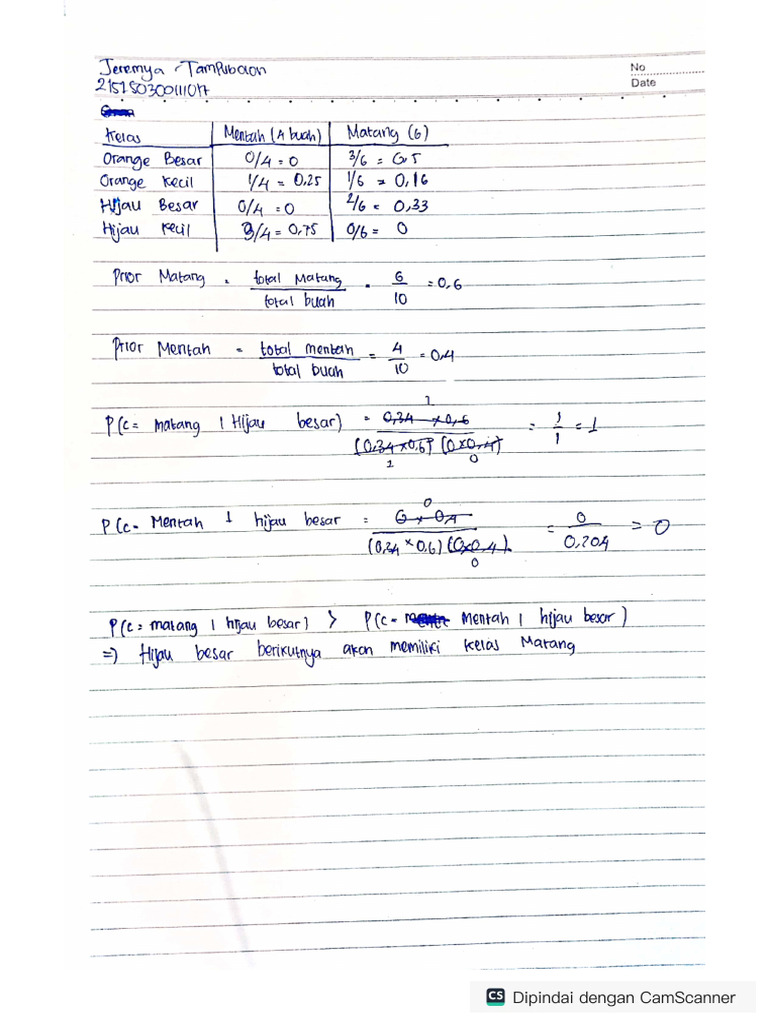 Jeremya Tampubolon
No
215150300111017
Date
Kelas Mentah (4 buah) Matang (6)
Orange Besar 0/4 = 0 3/6 = 0.5
Orange Kecil 1/4 = 0,25 1/6 = 0,16
Hijau Besar 0/4 = 0 2/6 = 0,33
Hijau Kecil 3/4 = 0,75 0/6 = 0
Prior Matang = total Matang / total buah = 6/10 = 0,6
Prior Mentah = total mentah / total buah = 4/10 = 0.4
1
P(c = matang | Hijau besar) = 0,34 x 0,6 / (0,34 x 0,6) (0 x 0,4) = 1/1 = 1
1 0
0
P(c = Mentah | hijau besar = 0 x 0,4 / (0,34 x 0,6) (0 x 0,4) = 0/0,204 = 0
0
P(c = matang | hijau besar) > P(c = Mentah | hijau besar)
=> Hijau besar berikutnya akan memiliki kelas Matang
CS Dipindai dengan CamScanner